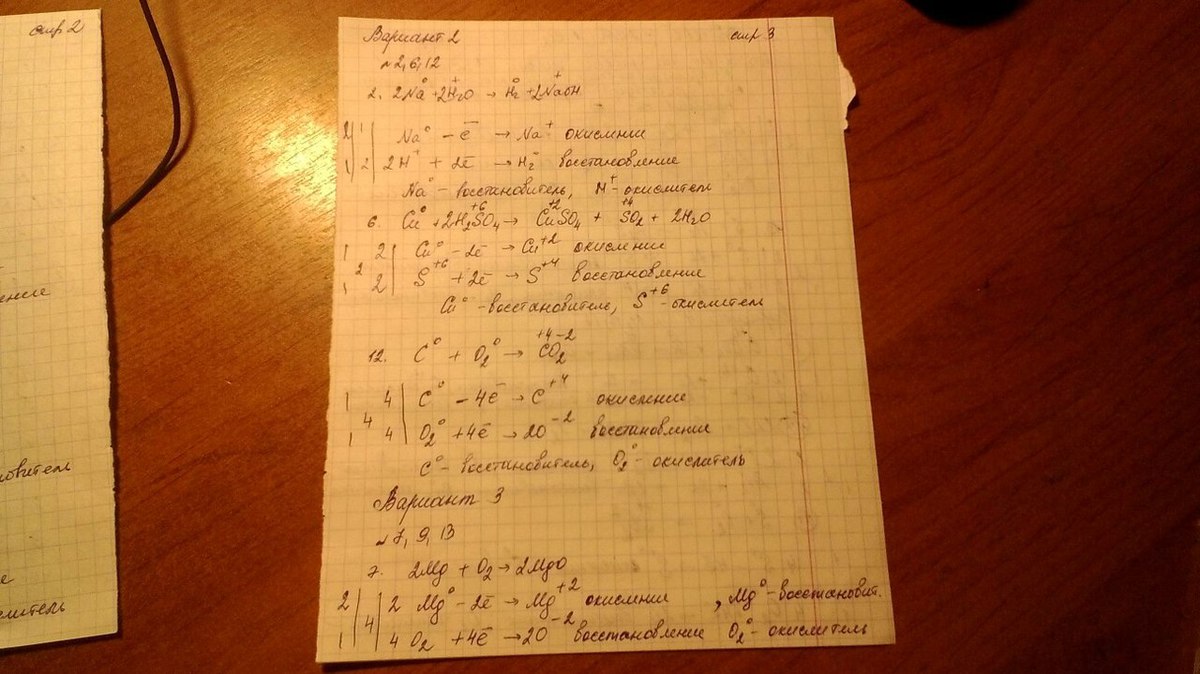 стр 2
ение
новитель
е
слитель
Вариант 2 стр 3
№ 2, 6, 12
2. 2Na⁰ + 2H⁺₂O → H⁰₂ + 2Na⁺OH
2 | 1 | Na⁰ - ē → Na⁺ окисление
1 | 2 | 2H⁺ + 2ē → H₂ восстановление
Na⁰ - восстановитель, H⁺ - окислитель
6. Cu⁰ + 2H₂S⁺⁶O₄ → Cu⁺²SO₄ + S⁺⁴O₂ + 2H₂O
1 2 | Cu⁰ - 2ē → Cu⁺² окисление
2
1 2 | S⁺⁶ + 2ē → S⁺⁴ восстановление
Cu⁰ - восстановитель, S⁺⁶ - окислитель
12. C⁰ + O₂⁰ → C⁺⁴O₂⁻²
1 4 | C⁰ - 4ē → C⁺⁴ окисление
4
1 4 | O₂⁰ + 4ē → 2O⁻² восстановление
C⁰ - восстановитель, O₂⁰ - окислатель
Вариант 3
№ 7, 9, 13
7. 2Mg + O₂ → 2MgO
2 | | 2 Mg⁰ - 2ē → Mg⁺² окисление , Mg⁰ - восстановит.
1 | 4 | 4 O₂ + 4ē → 2O⁻² восстановление O₂⁰ - окислитель